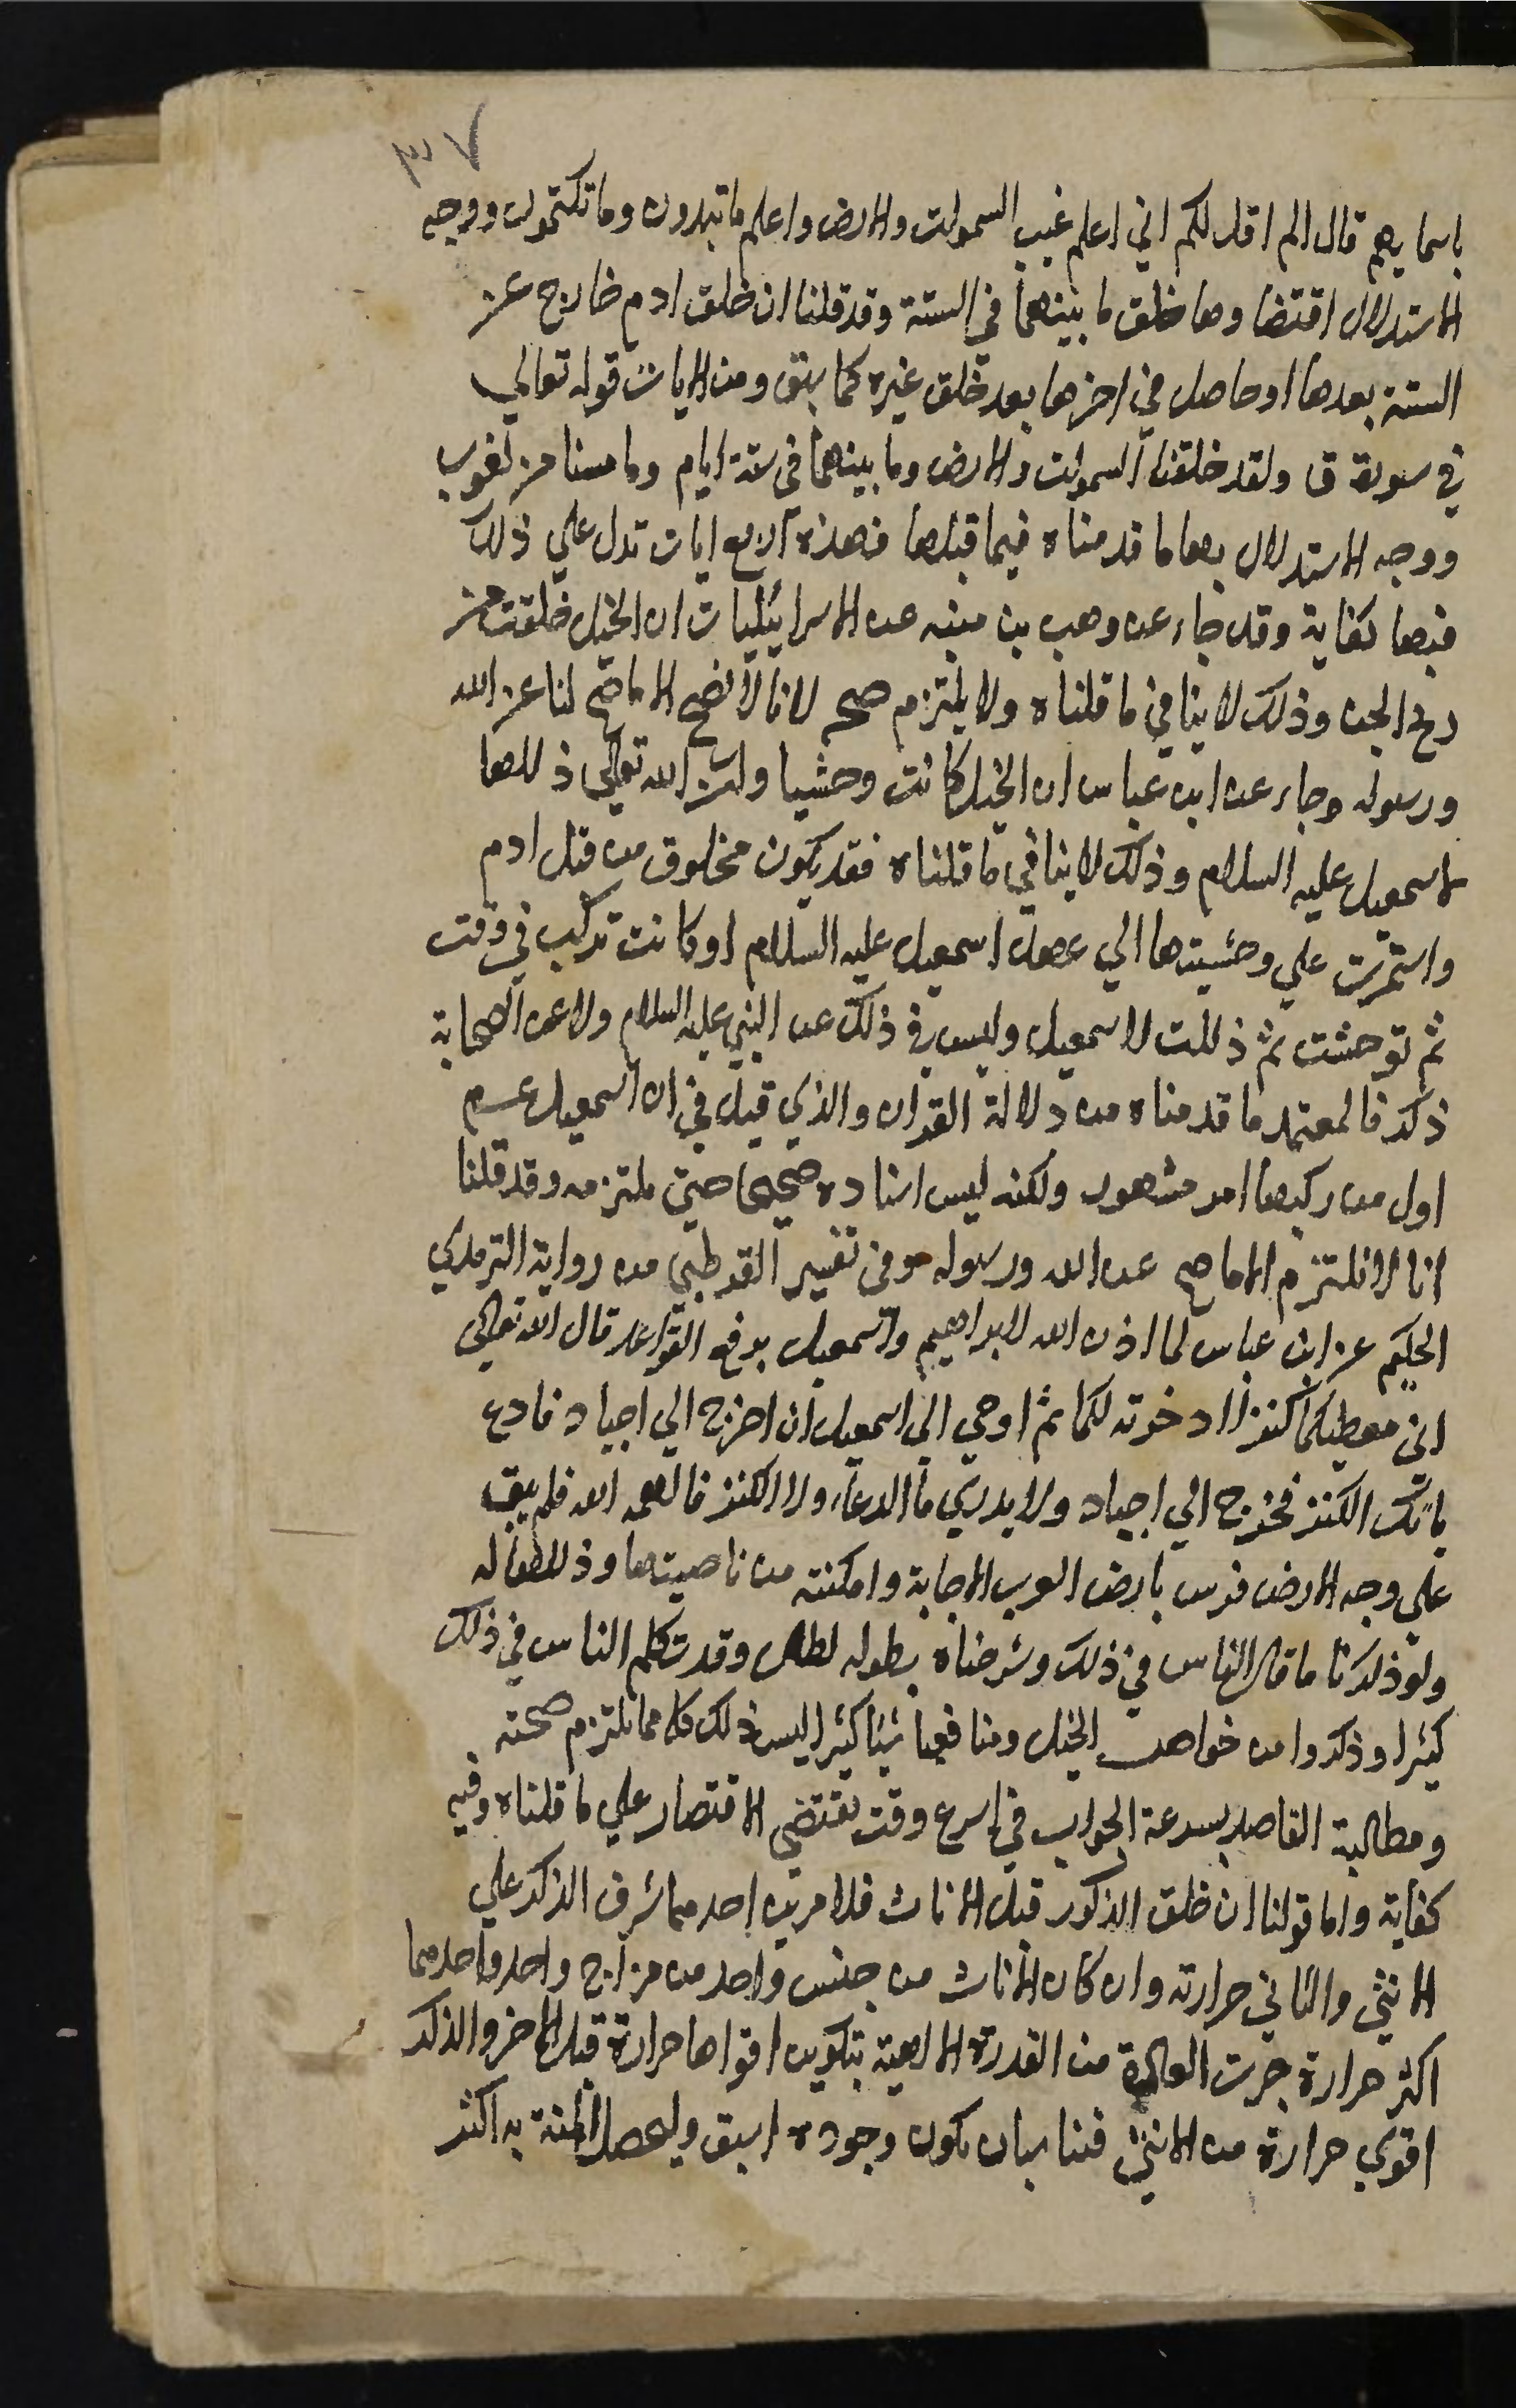 ٣٧
باسمايهم قال الم اقل لكم اني اعلم غيب السموات والارض واعلم ما تبدون وما تكتمون ووجه
الاستدلال اقتضا وها خلق ما بينهما في الستة وقد قلنا ان خلق ادم خارج عن
الستة بعدها او حاصل في اخرها بعد خلق غيره كما سبق ومن الايات قوله تعالي
في سورة ق ولقد خلقنا السموات والارض وما بينهما في ستة ايام وما مسنا من لغوب
ووجه الاستدلال بها ما قدمناه فيما قبلها فهذه اربع ايات تدل علي ذلك
فيها كفاية وقد جاء عن وهب بن منبه عن الاسرائيليات ان الخيل خلقت من
ريح الجن وذلك لا ينافي ما قلناه ولا يلتزم صح لانا لا نصحح الا ما صح لنا عن الله
ورسوله وجاء عن ابن عباس ان الخيل كانت وحشيا وان الله تعالي ذللها
لاسمعيل عليه السلام وذلك لا ينافي ما قلناه فقد يكون مخلوق من قبل ادم
واستمرت علي وحشيتها الي عهد اسمعيل عليه السلام او كانت تركب في وقت
ثم توحشت ثم ذللت لاسمعيل وليس في ذلك عن النبي عليه السلام ولا عن الصحابة
ذكر فالمعتمد ما قدمناه من دلالة القران والذي قيل في ان اسمعيل عسم
اول من ركبها امر مشهور ولكنه ليس اسناده صحيحا حتي ملتزمه وقد قلنا
انا لا نلتزم الا ما صح عن الله ورسوله وفي تفسير القرطبي من رواية الترمدي
الحكيم عن ابن عباس لما اذن الله لابراهيم واسمعيل برفع القواعد قال الله تعالي
اني معطيكما كنزا ادخرته لكما ثم اوحي الي اسمعيل ان اخرج الي اجياد فادع
ياتك الكنز فخرج الي اجياد ولا يدري ما الدعاء ولا الكنز فالهمه الله فلم يبق
علي وجه الارض فرس بارض العرب الا جابة وامكنته من ناصيتها وذللها له
ولو ذكرنا ما قال الناس في ذلك وشرحناه بطوله لطال وقد تكلم الناس في ذلك
كثيرا وذكروا من خواص الخيل ومنافعها شيئا كثيرا ليس ذلك كله مما نلتزم صحته
ومطالبة القاصد بسرعة الجواب في اسرع وقت يقتضي الاقتصار علي ما قلناه وفيه
كفاية واما قولنا ان خلق الذكور قبل الاناث فلامرين احدهما شرف الذكر علي
الانثي والثاني حرارته وان كان الاناث من جنس واحد من مزاج واحد واحدهما
اكثر حرارة جرت العادة من القدرة الالهية بتكوين اقواها حرارة قبل الاخر والذكر
اقوي حرارة من الانثي فناسب ان يكون وجوده اسبق وليحصل المنة به اكثر